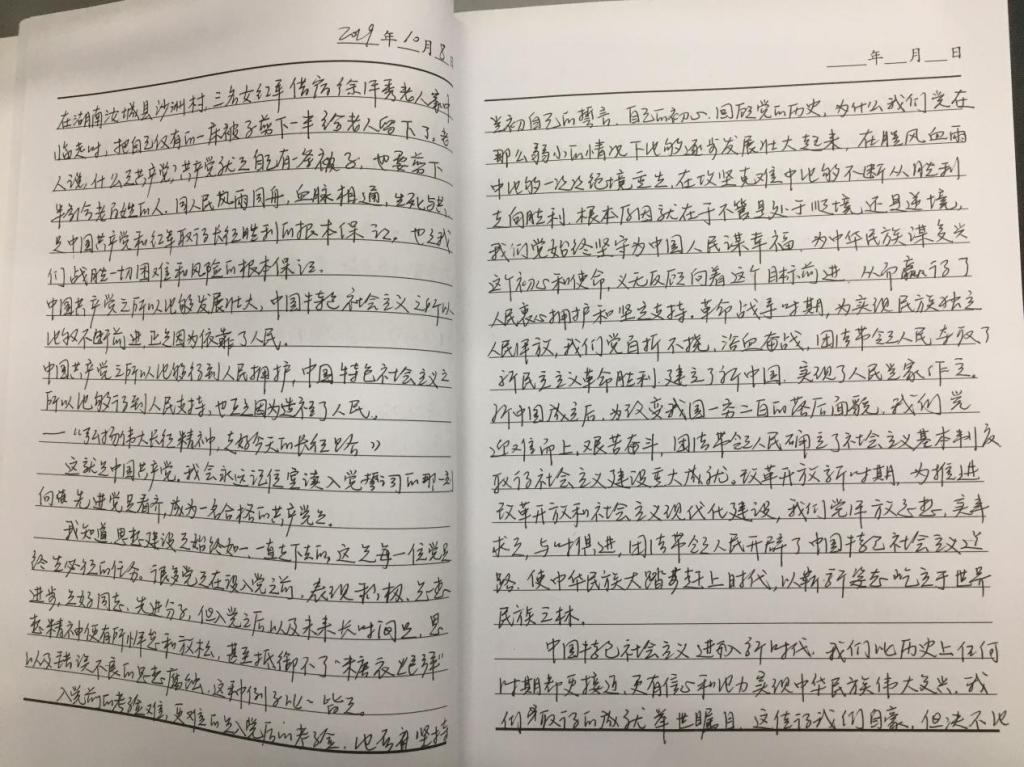 2019年10月8日
在湖南汝城县沙洲村,三名女红军借宿徐解秀老人家中
临走时,把自己仅有的一床被子剪下一半给老人留下了。老
人说,什么是共产党?共产党就是自己有一条被子,也要剪下
半条给老百姓的人。同人民风雨同舟,血脉相通,生死与共,
是中国共产党和红军取得长征胜利的根本保证,也是我
们战胜一切困难和风险的根本保证。
中国共产党之所以能够发展壮大,中国特色社会主义之所以
能够不断前进,正是因为依靠了人民。
中国共产党之所以能够得到人民拥护,中国特色社会主义之
所以能够得到人民支持,也正是因为造福了人民。
——“弘扬伟大长征精神,走好今天的长征路》
这就是中国共产党。我会永远记住宣读入党誓词的那一刻
向优先进党员看齐,成为一名合格的共产党员。
我知道思想建设是始终如一,一直走下去的,这是每一位党员
终生必经的任务。很多党员在没入党之前,表现积极、思想
进步,是好同志、先进分子,但入党之后以及未来长时间里,思
想精神便有所懈怠和放松,甚至抵御不了“糖衣炮弹”
以及种种不良的思想腐蚀,这种例子比比皆是。
入党前的考验难,更难的是入党后的考验,能否有坚持
年 月 日
当初自己的誓言,自己的初心。回顾党的历史,为什么我们党在
那么弱小的情况下能够逐步发展壮大起来,在腥风血雨
中能够一次次绝境重生,在攻坚克难中能够不断从胜利
走向胜利,根本原因就在于不管是处于顺境,还是逆境,
我们党始终坚守为中国人民谋幸福,为中华民族谋复兴
这个初心和使命,义无反顾向着这个目标前进,从而赢得了
人民衷心拥护和坚定支持。革命战争时期,为实现民族独立
人民解放,我们党百折不挠,浴血奋战,团结带领人民夺取了
新民主主义革命胜利,建立了新中国,实现了人民当家作主。
新中国成立后,为改变我国一穷二白的落后面貌,我们党
迎难而上,艰苦奋斗,团结带领人民确立了社会主义基本制度
取得社会主义建设重大成就。改革开放新时期,为推进
改革开放和社会主义现代化建设,我们党解放思想,实事
求是,与时俱进,团结带领人民开辟了中国特色社会主义道
路,使中华民族大踏步赶上时代,以崭新姿态屹立于世界
民族之林。
中国特色社会主义进入新时代,我们比历史上任何
时期都更接近,更有信心和能力实现中华民族伟大复兴,我
们取得的成就举世瞩目,这值得我们自豪,但决不能